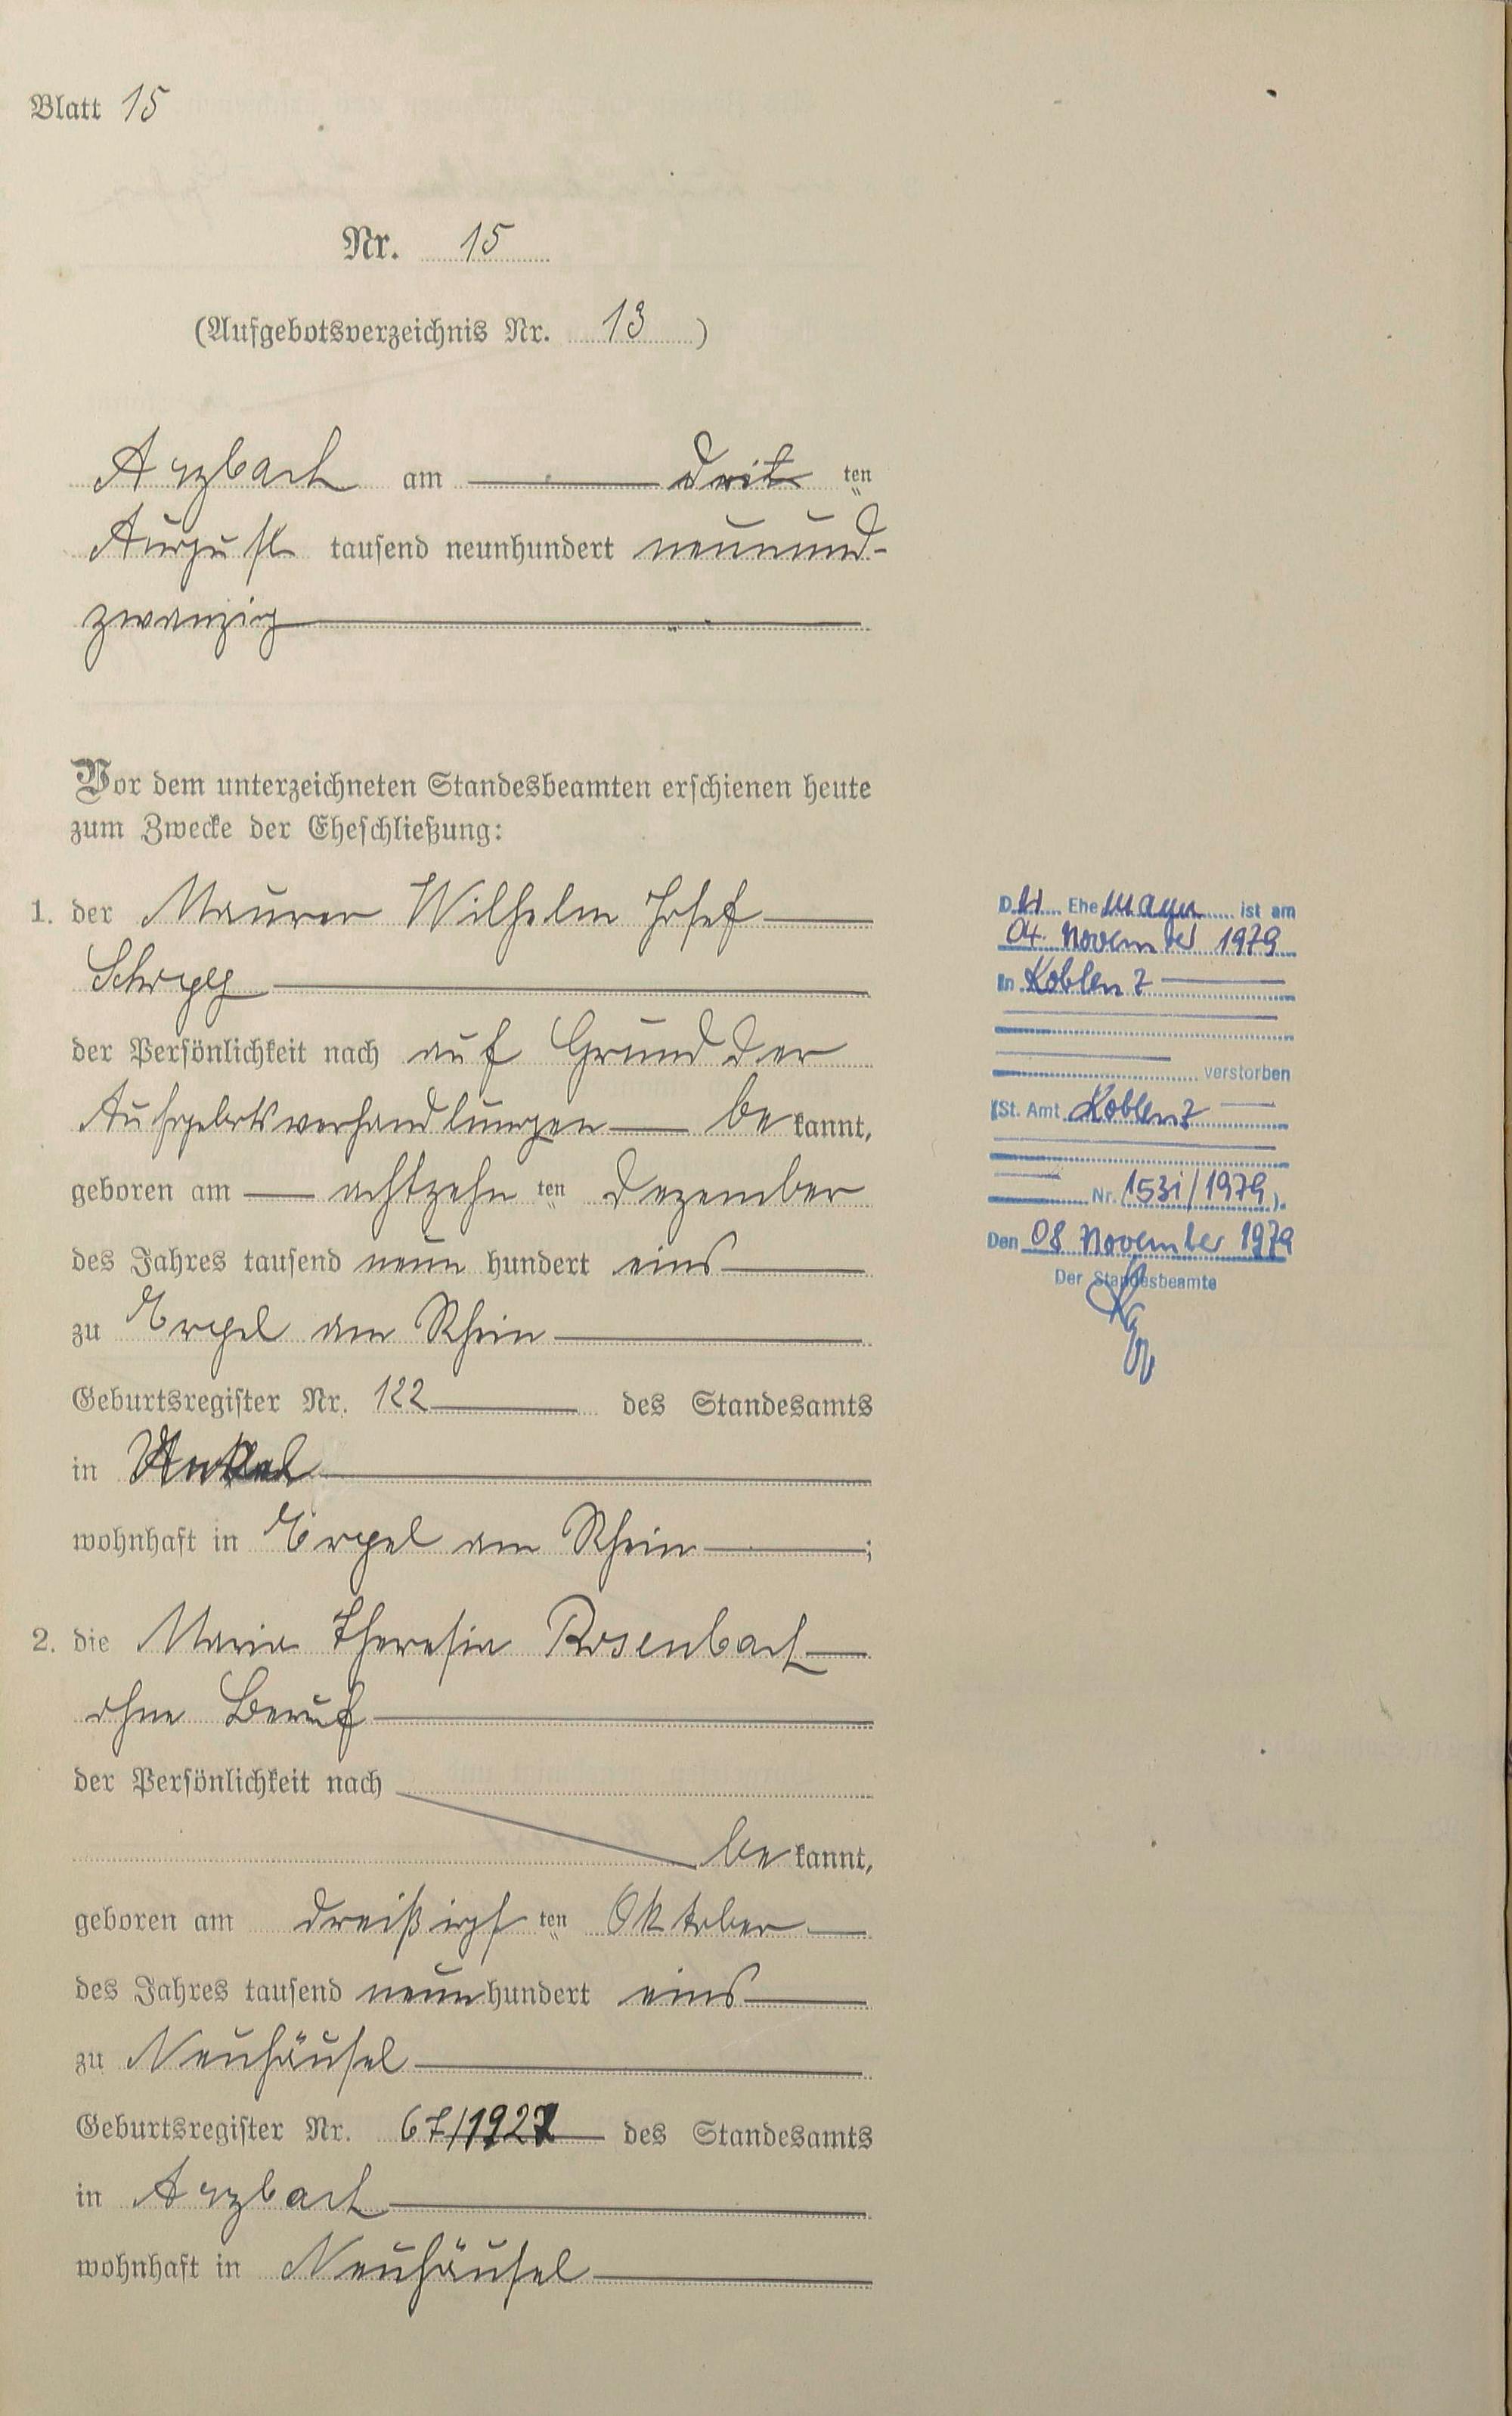 Blatt 15
Nr. 15
(Aufgebotsverzeichnis Nr. 13)
Arzbach am drit ten
August tausend neunhundert neunund-
zwanzig
Vor dem unterzeichneten Standesbeamten erschienen heute
zum Zwecke der Eheschließung:
1. der Maurer Wilhelm Josef
der Persönlichkeit nach auf Grund der
Aufgebotsverhandlungen be kannt,
geboren am achtzehn ten Dezember
des Jahres tausend neun hundert eins
zu Erpel am Rhein
Geburtsregister Nr. 122 des Standesamts
in Unkel
wohnhaft in Erpel am Rhein;
2. die Maria Theresia Rosenbach
ohne Beruf
der Persönlichkeit nach
be kannt,
geboren am dreißigs ten Oktober
des Jahres tausend neun hundert eins
zu Neuhäusel
Geburtsregister Nr. des Standesamts
in Arzbach
wohnhaft in Neuhäusel
Der Ehemann ist am
04. November 1979
in Koblenz
verstorben
(St. Amt Koblenz
Nr. 1531/1979).
Den 08 November 1979
Der Standesbeamte